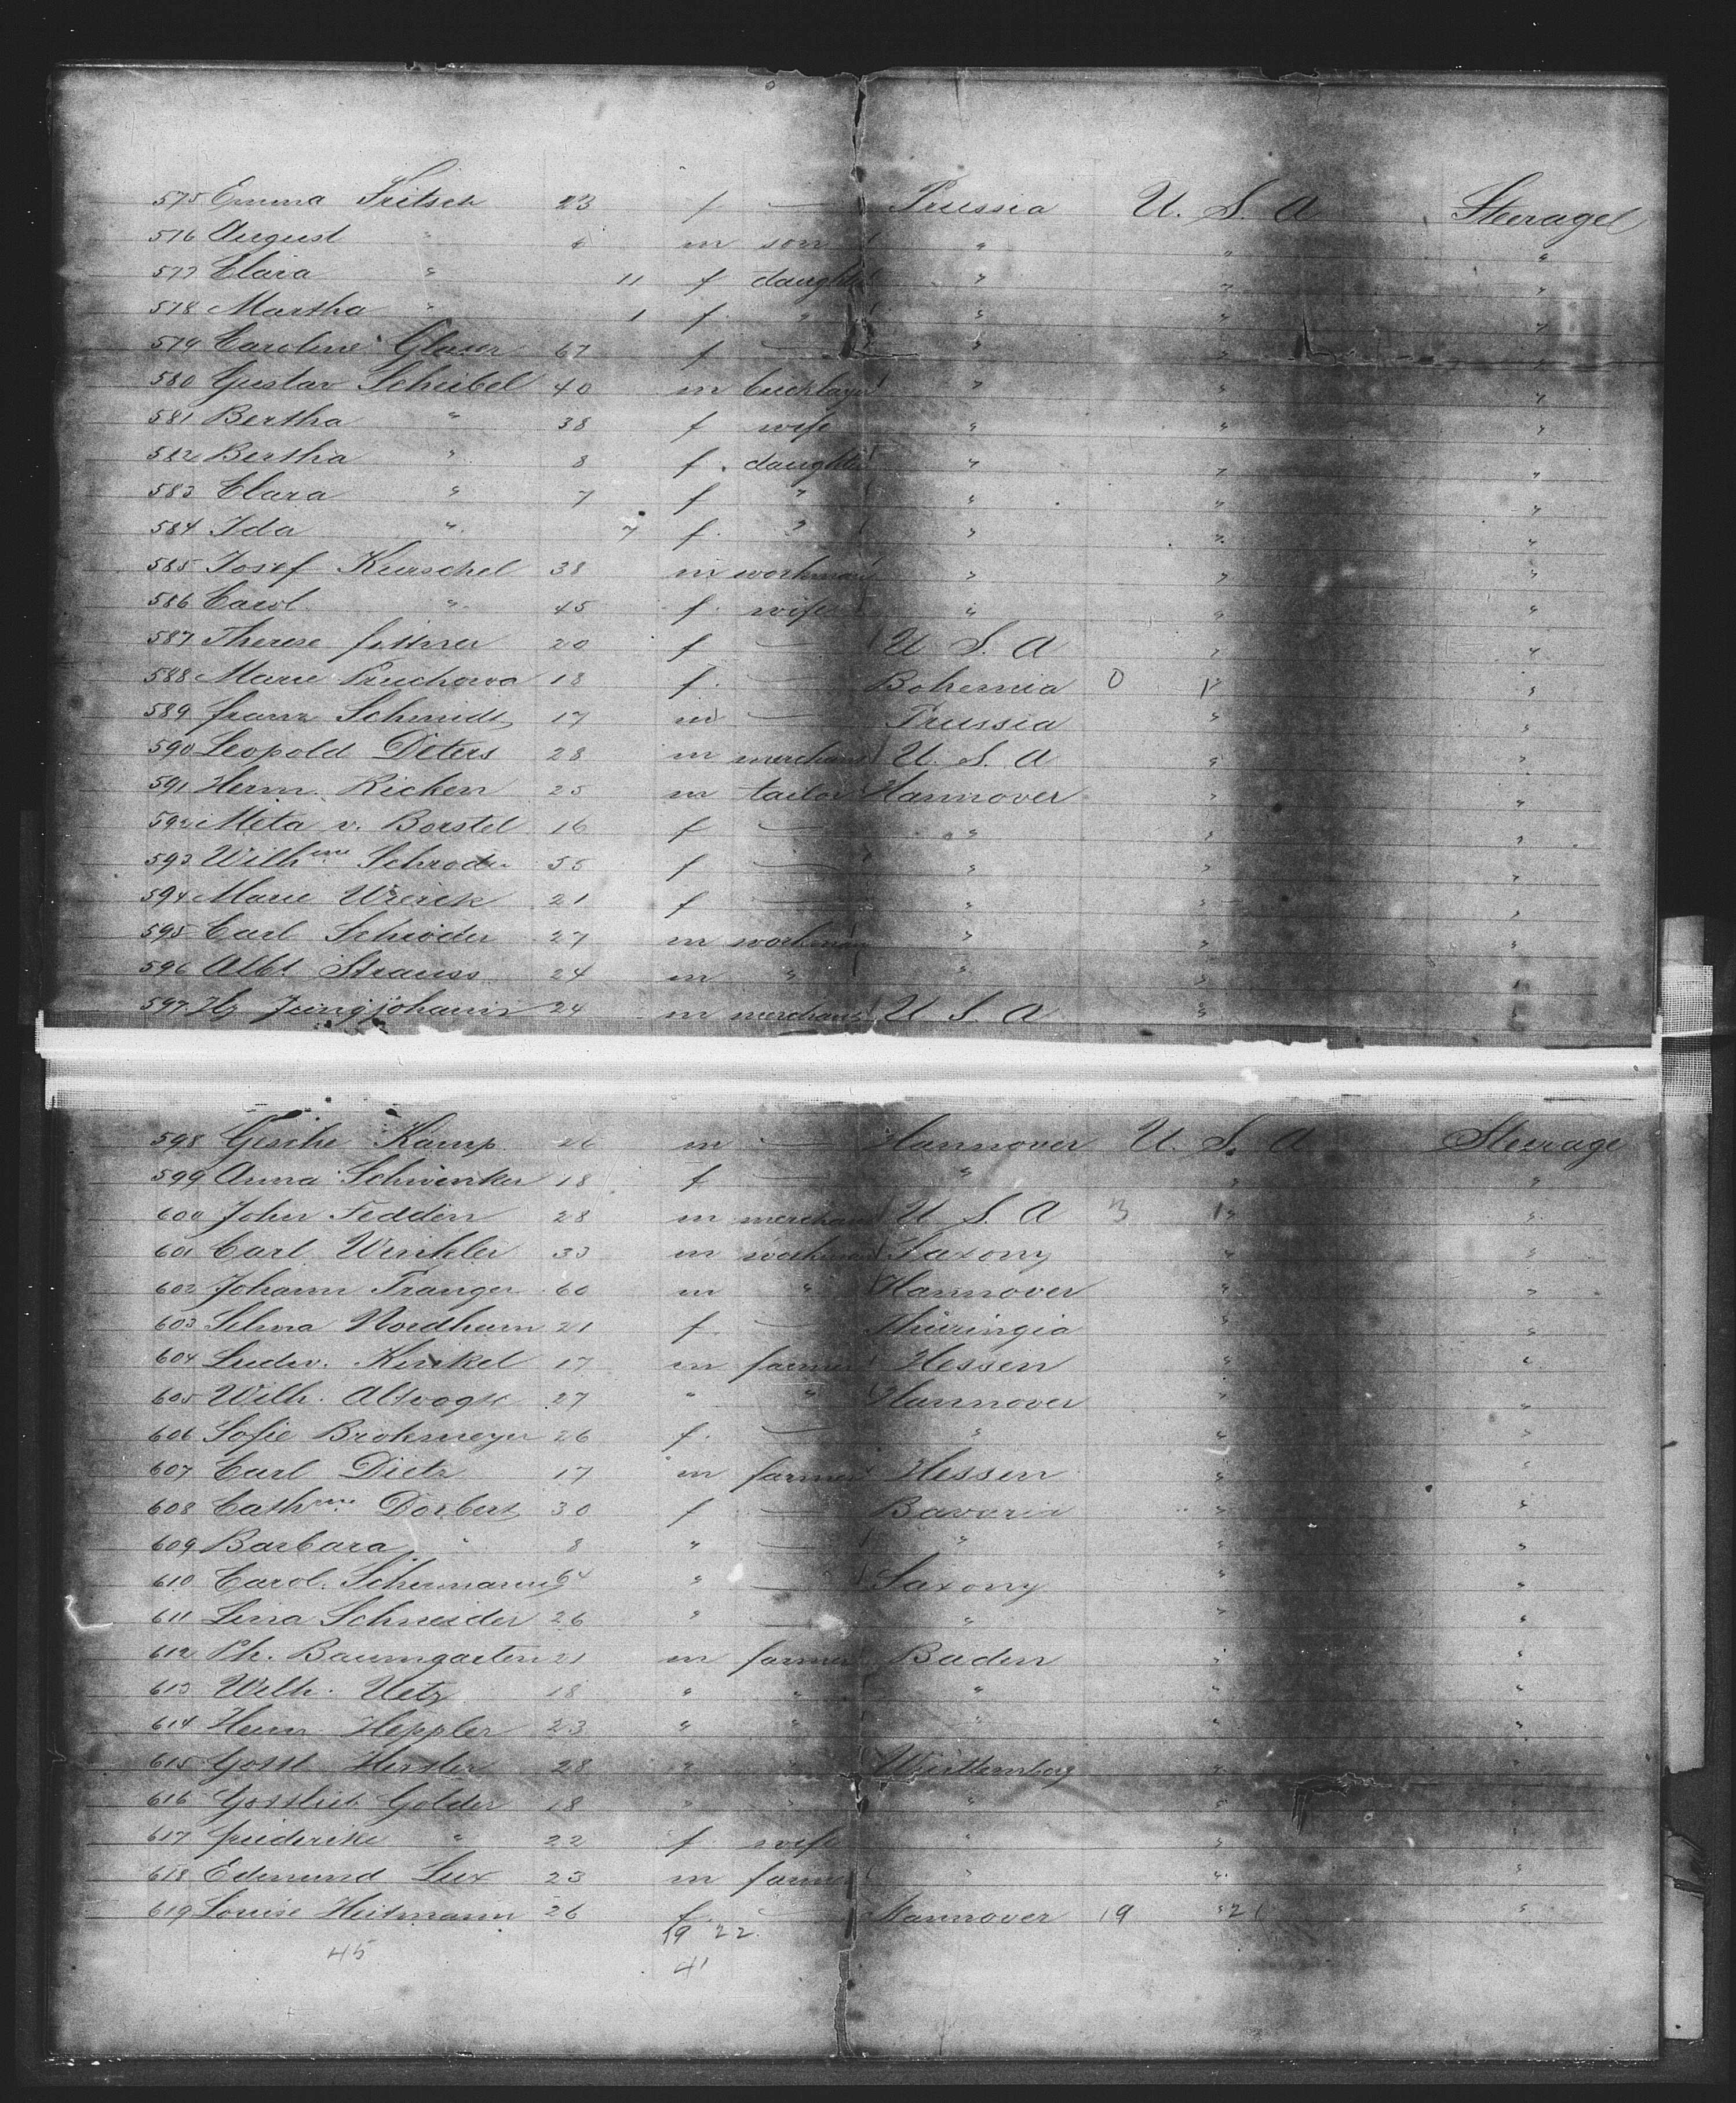 575 Emma Fritsch 23 f — Prussia U. S. A Steerage
576 August " 6 m son " " "
577 Clara " 11 f daughter " " "
578 Martha " 1 f " " " "
579 Caroline Glaser 67 f — " " "
580 Gustav Scheibel 40 m bricklayer " " "
581 Bertha " 38 f wife " " "
582 Bertha " 8 f. daughter " " "
583 Clara " 7 f " " " "
584 Ida " 7 f. " " " "
585 Josef Kurschel 38 m workman " " "
586 Carol. " 45 f. wife " " "
587 Therese 20 f — U S. A " "
588 Marie Pruchova 18 f. — Bohemia 0 1 " "
589 Franz Schmidt 17 m — Prussia " "
590 Leopold Deters 28 m merchant U. S. A " "
591 Herm. Ricken 25 m tailor Hannover " "
592 Meta v. Borstel 16 f — " " "
593 Wilhme Schroder 55 f — " " "
594 Marie 21 f — " " "
595 Carl Schröder 27 m workman " " "
596 Albt Strauss 24 m " " " "
597 Hy Jungjohann 24 m merchant U S A "
598 Gesche Kamp 26 m — Hannover U. S. A Steerage
599 Anna Schwenker 18 f — " " "
600 John Fedden 28 m merchant U S. A 3 1 " "
601 Carl Winkler 33 m workman Saxony " "
602 Johann Tranger 60 m " Hannover " "
603 Selma Nordheim 21 f. — Thüringia " "
604 Ludw. Kinkel 17 m farmer Hessen " "
605 Wilh. Altvogt 27 " " Hannover " "
606 Sofie Brokmeyer 26 f. — " " "
607 Carl Dietz 17 m farmer Hessen " "
608 Cathme Dorbert 30 f — Bavaria " "
609 Barbara " 8 " — " " "
610 Carol. Schurmann 64 " — Saxony " "
611 Lina Schneider 26 " — " " "
612 Ph. Baumgarten 21 m farmer Baden " "
613 Wilh. Uetz 18 " " " " "
614 Heinr Heppler 23 " " " " "
615 Gottl Hersler 28 " " Württemberg " "
616 Gottlieb Golder 18 " " " " "
617 Friederike " 22 f. wife " " "
618 Edmund Lux 23 m farmer " " "
619 Louise Heitmann 26 f. — Hannover 19 " 21 "
19 22
45 41